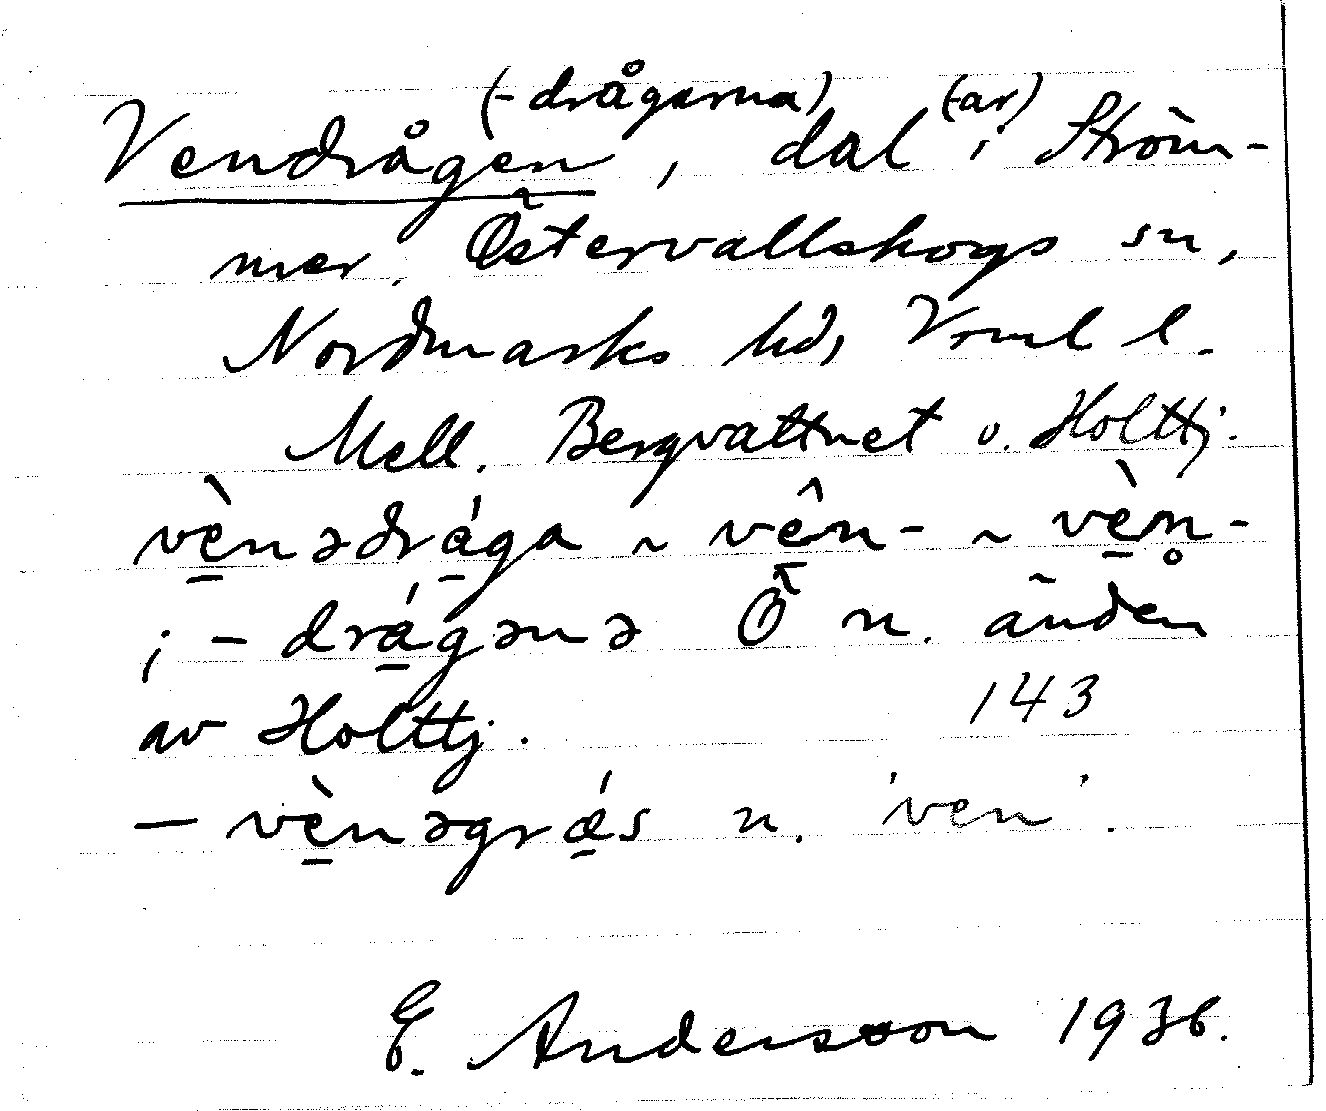 (-drågarna) (-ar)
Vendrågen, dal i Ström-
mer, Östervallskogs sn,
Nordmarks hd, Vrml l.
Mell. Bergvattnet o. Holttj.
vènədrága ~ vên- ~ vèn-
; -drágənə Ö n. änden
av Holttj. 143
— vènəgrǽs n. 'ven'.
E. Andersson 1936.